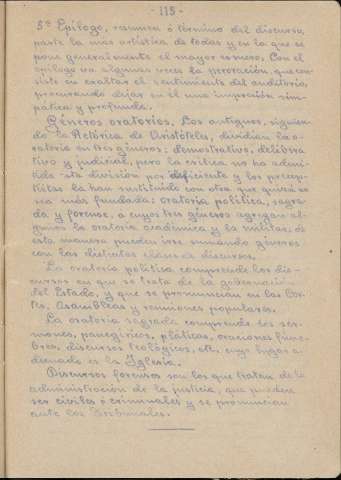 - 115 -
5º Epílogo, resumen ó término del discurso,
parte la más artística de todas y en la que se
pone generalmente el mayor esmero. Con el
epílogo va algunas veces la peroración, que con-
siste en exaltar el sentimiento del auditorio,
procurando dejar en él una impresión sim-
pática y profunda.
Géneros oratorios. Los antiguos, siguien-
do la Retórica de Aristóteles, dividían la o-
ratoria en tres géneros: demostrativo, delibera-
tivo y judicial, pero la crítica no ha admi-
tido esta división por deficiente y los precep-
tistas la han sustituido con otra que quizá es
sea más fundada: oratoria política, sagra-
da y forense, a cuyos tres géneros agregan al-
gunos la oratoria académica y la militar; de
esta manera pueden irse sumando géneros
con las distintas clases de discursos.
La oratoria política comprende los dis-
cursos en que se trata de la gobernación
del Estado, y que se pronuncian en las Cor-
tes, Asambleas y reuniones populares.
La oratoria sagrada comprende los ser-
mones, panegíricos, pláticas, oraciones fúne-
bres, discursos teológicos, etc, cuyo lugar a-
decuado es la Iglesia.
Discursos forenses son los que tratan de la
administración de la justicia, que pueden
ser civiles ó criminales y se pronuncian
ante los Tribunales.